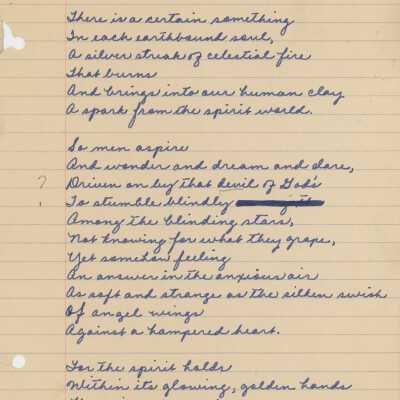 There is a certain something
In each earthbound soul,
A silver streak of celestial fire
That burns
And brings into our human clay
A spark from the spirit world.
So men aspire
And wonder and dream and dare,
? Driven on by that devil of God's
To stumble blindly
Among the blinding stars,
Not knowing for what they grope,
Yet somehow feeling
An answer in the anxious air
As soft and strange as the silken swish
Of angel wings
Against a hampered heart.
For the spirit holds
Within its glowing, golden hands